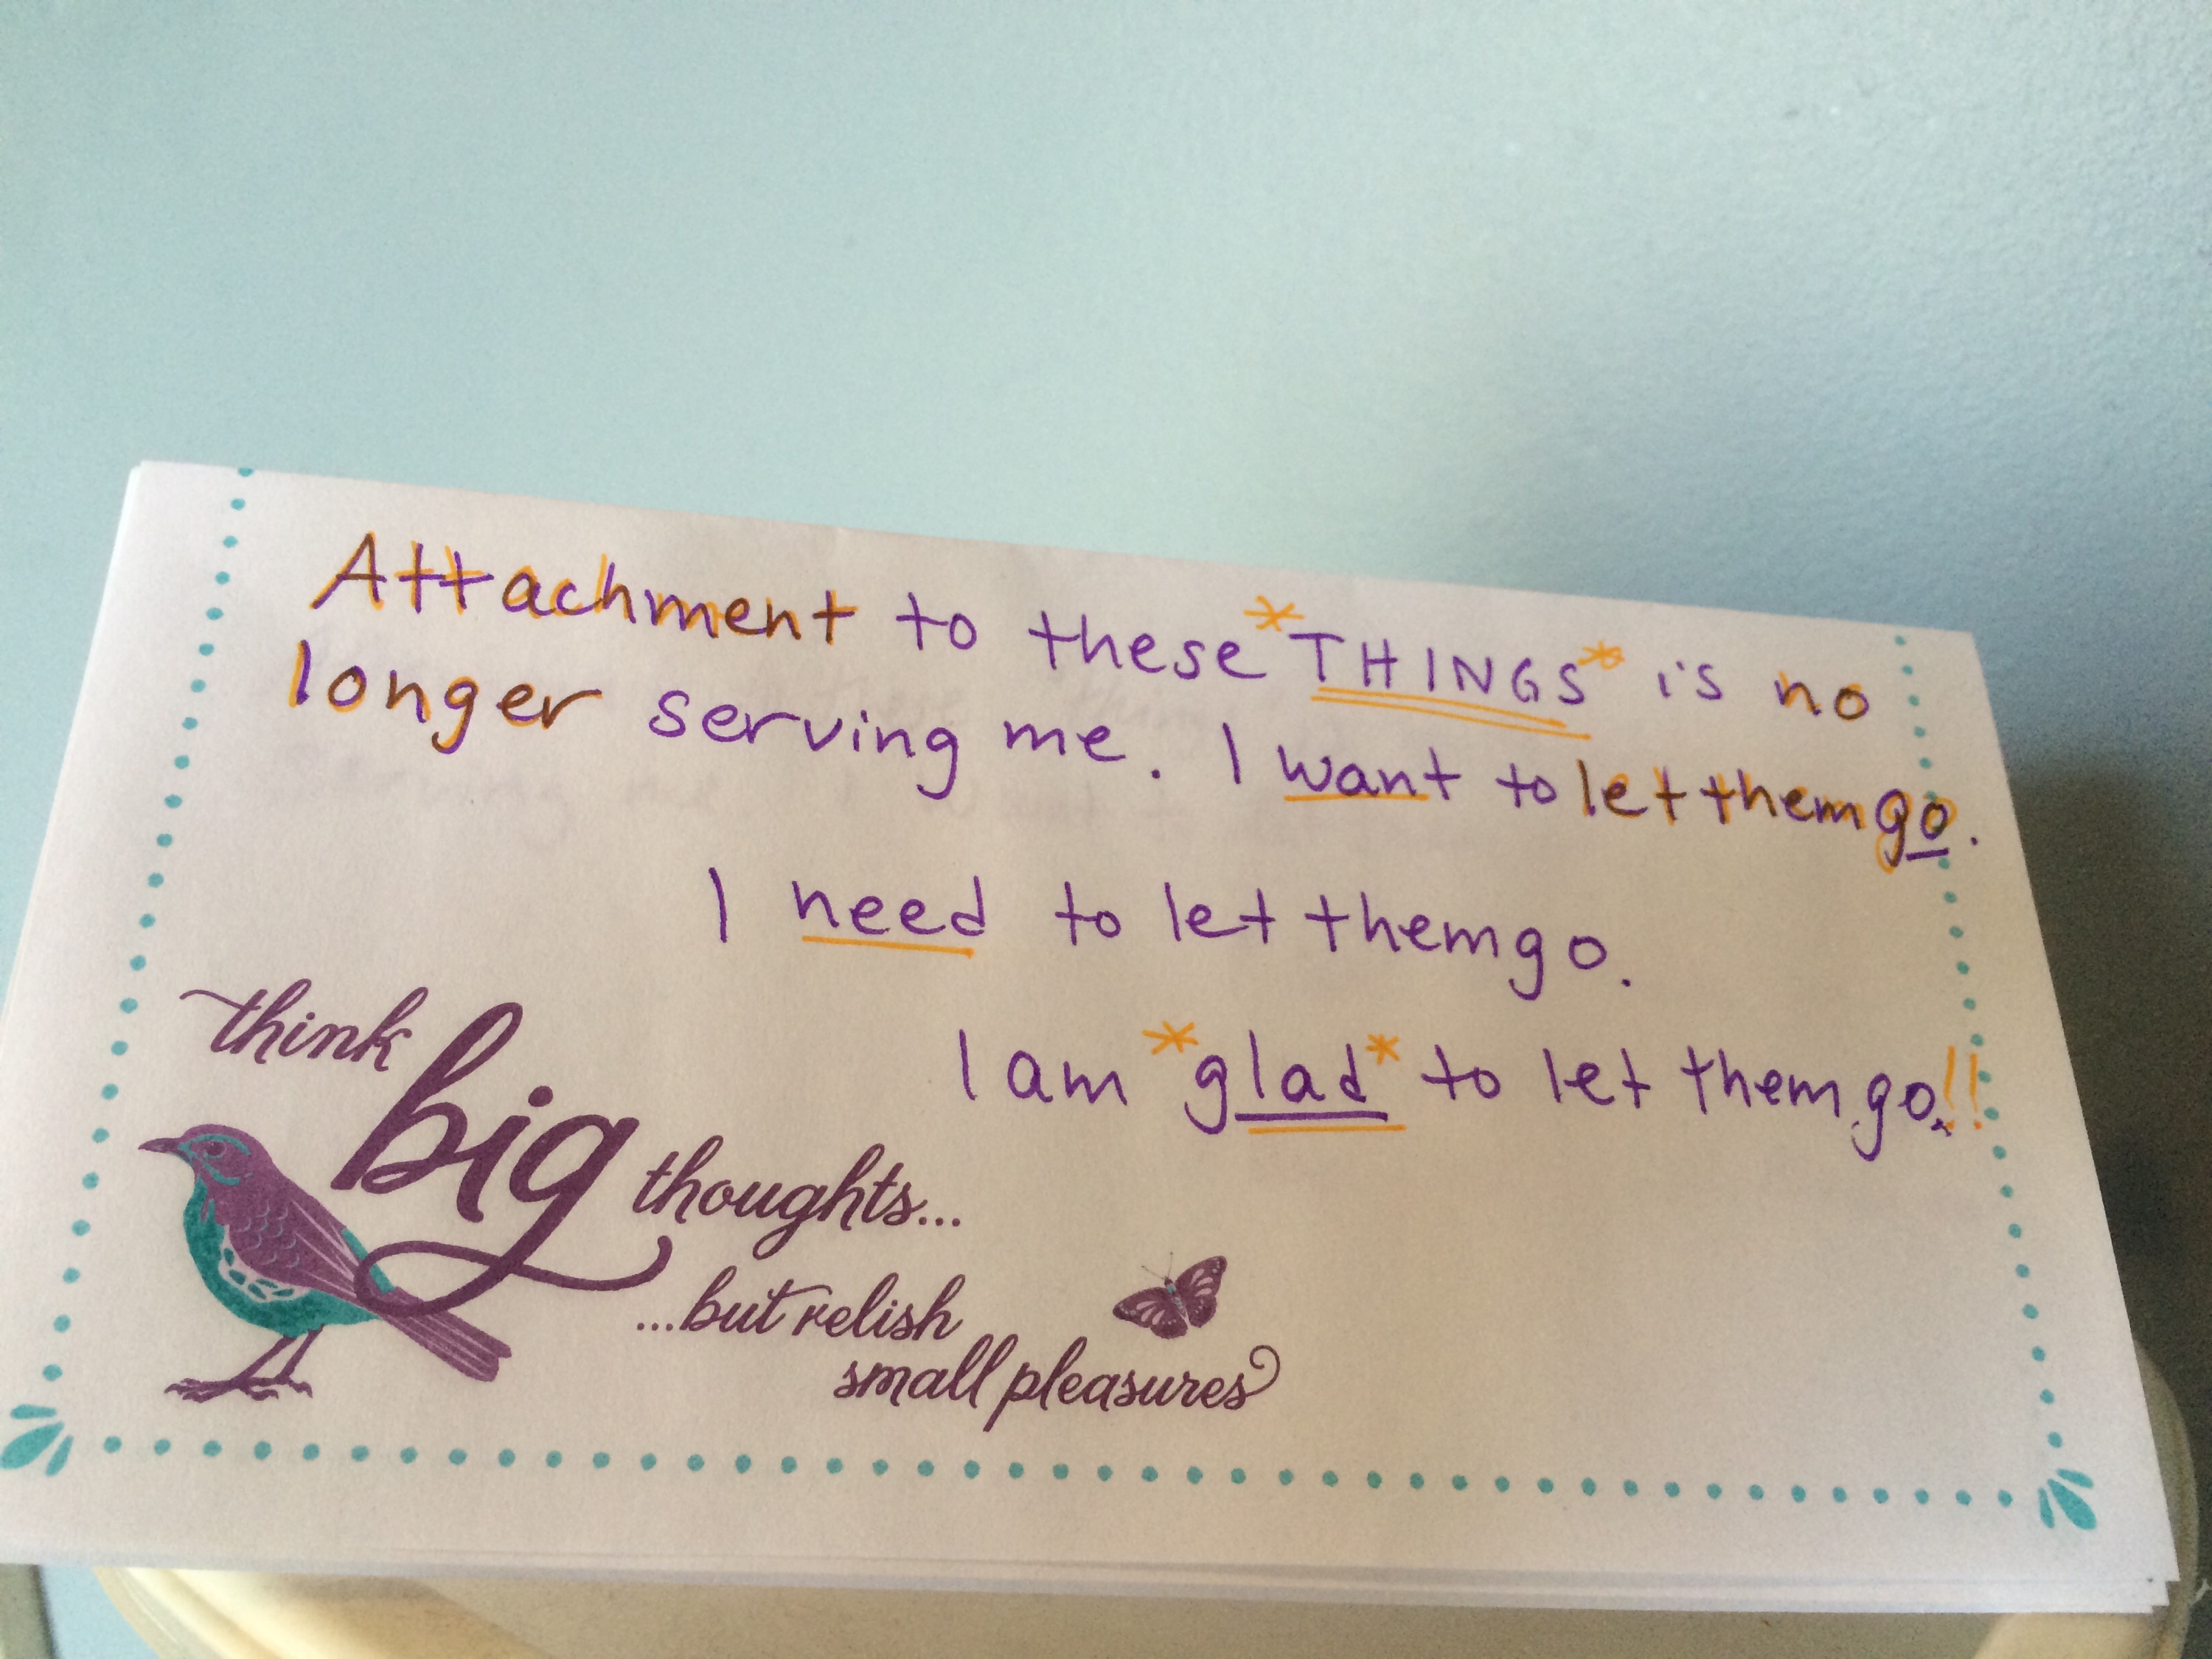 Attachment to these *THINGS* is no
longer serving me. I want to let them go.
I need to let them go.
I am *glad* to let them go!!
think
big
thoughts...
...but relish
small pleasures